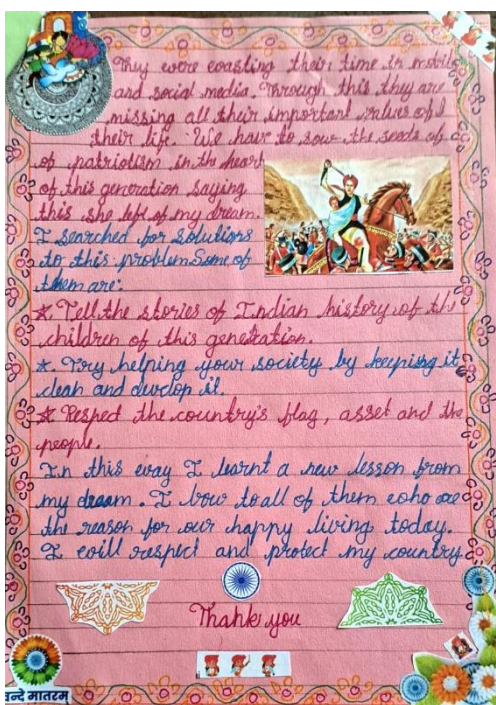 They were wasting their time in mobile
and social media. Through this they are
missing all their important values of
their life. We have to sow the seeds of
of patriotism in the heart
of this generation saying
this she left of my dream.
I searched for solutions
to this problem Some of
them are:
* Tell the stories of Indian history of the
children of this generation.
* Try helping your society by keeping it
clean and develop it.
* Respect the country's flag, asset and the
people.
In this way I learnt a new lesson from
my dream. I bow to all of them who are
the reason for our happy living today.
I will respect and protect my country
Thank you
वन्दे मातरम्